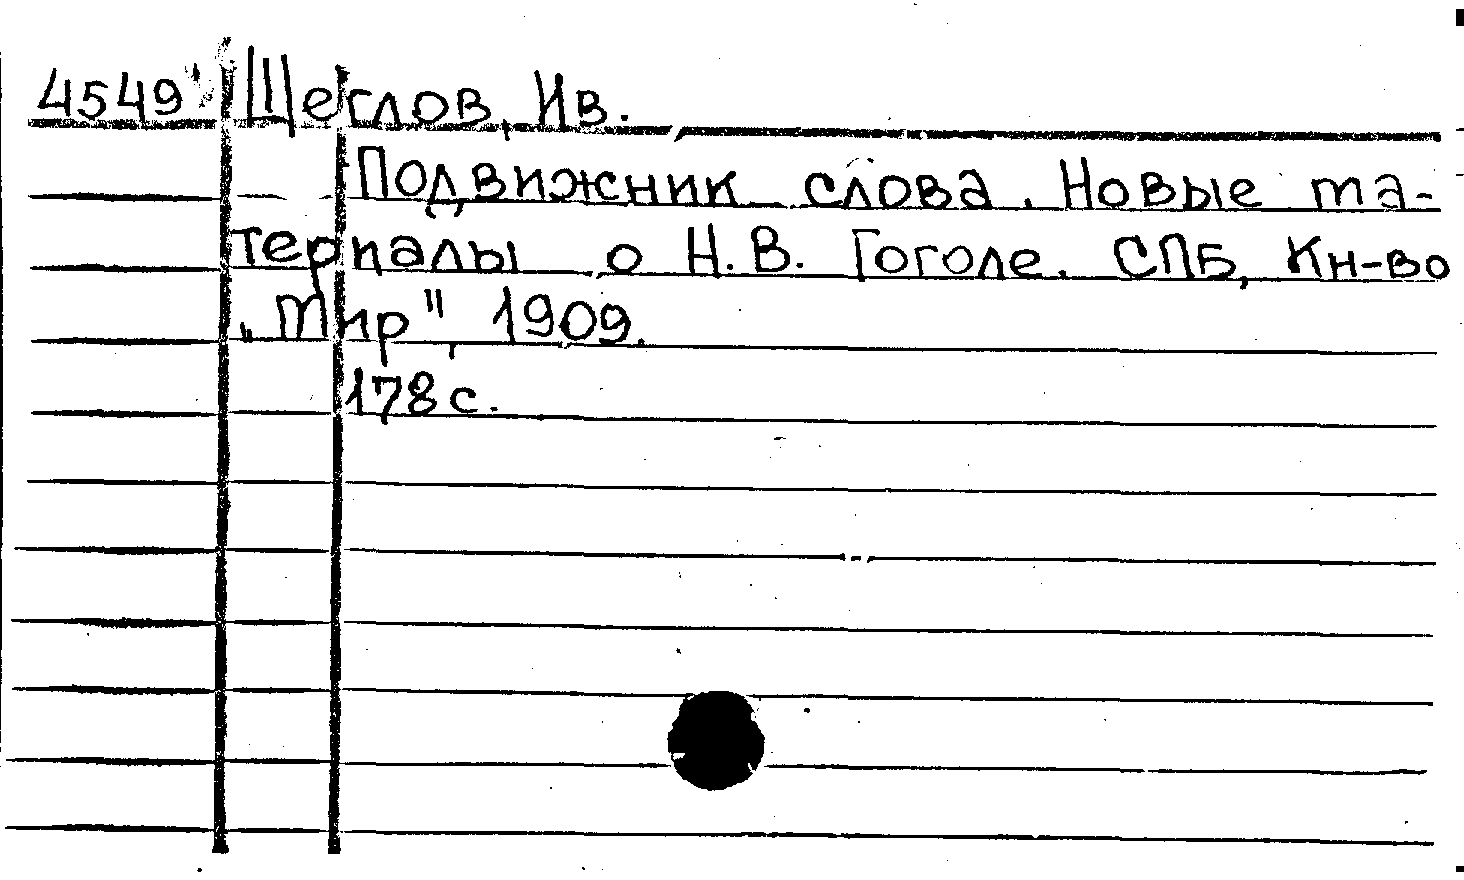 4549 Щеглов, Ив.
Подвижник слова. Новые ма-
териалы о Н.В. Гоголе. СПБ, Кн-во
„Мир", 1909.
178 с.